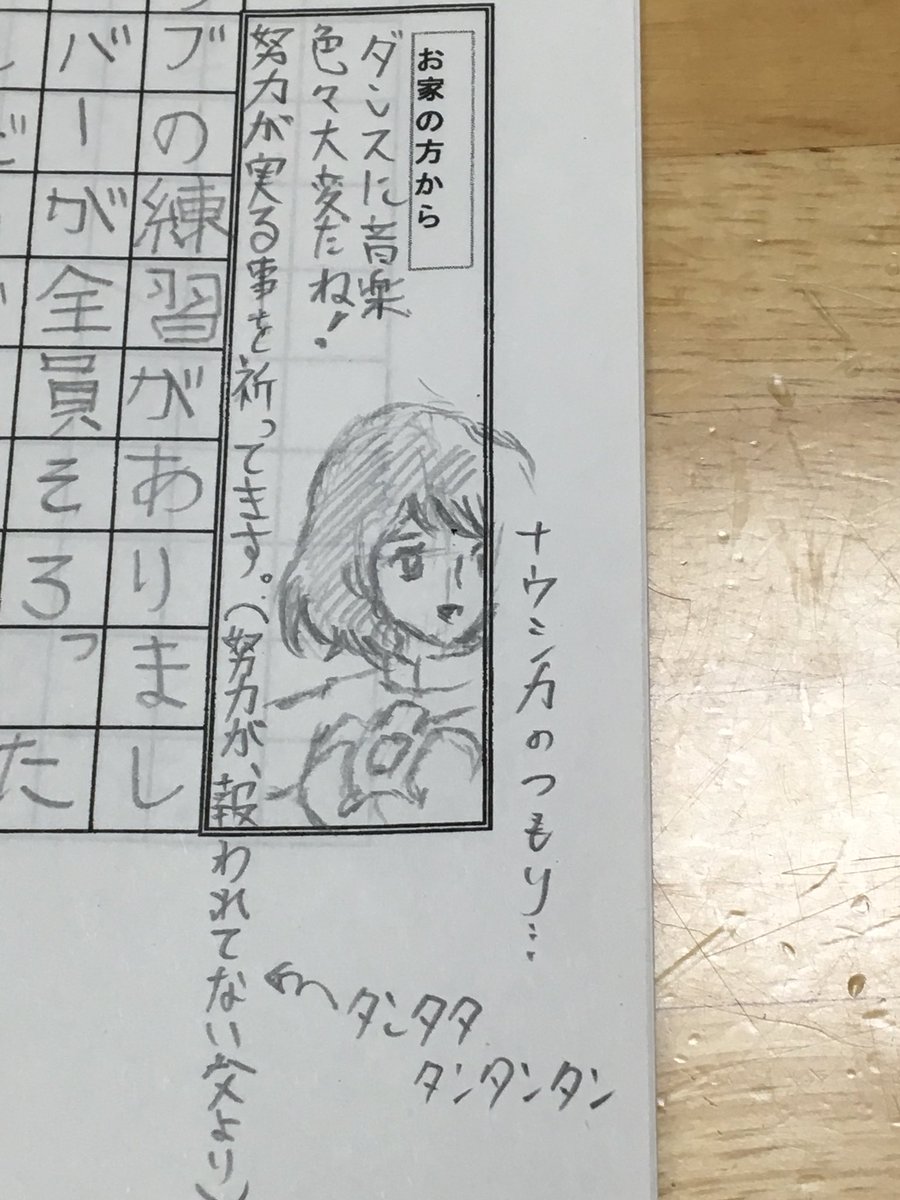 お家の方から
ダンスに音楽
色々大変だね!
努力が実る事を祈ってきます。(努力が、報われてない父より)
ナウシカのつもり…
タンタタ
タンタンタン
ブの練習がありまし
バーが全員そろった